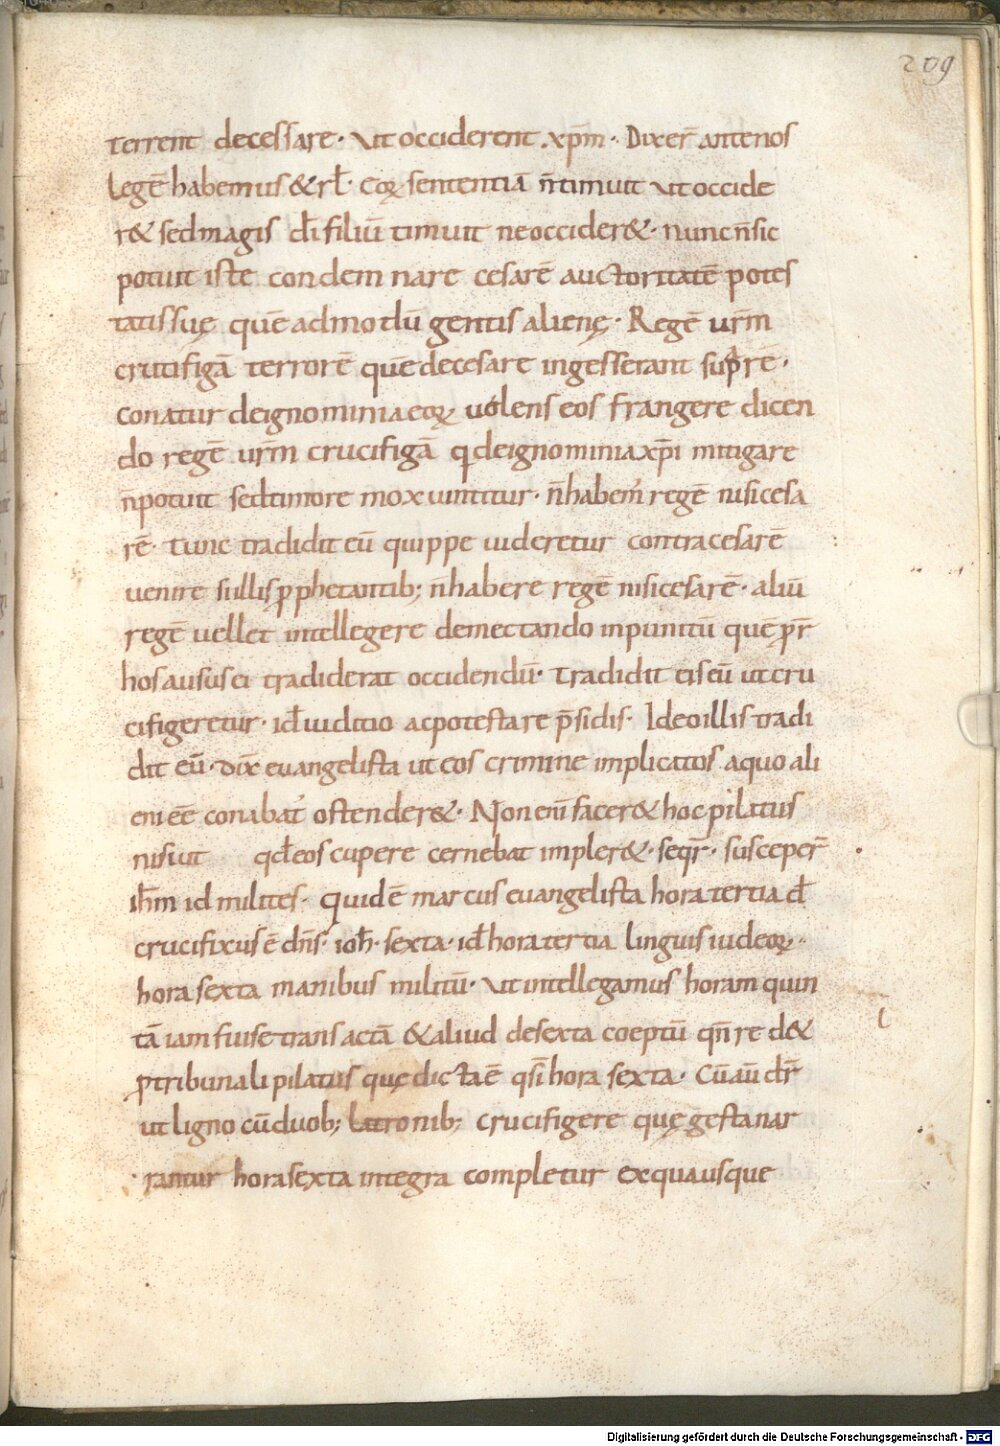 209
terrent decessare · Ut occiderent xp̄m · Dixer̄ antenos
legē habemus & rł · Eoꝝ sententiā n̄timuit ut occide
r& sedmagis dī filiū timuit neoccider& · nunc n̄sic
potuit iste condemnare cesarē auctoritatē potes
tatis suę quēadmodū gentis alienę · Regē ur̄m
crucifigā terrorē quēdecesare ingesserant supprē ·
conatur deignominia eoꝝ uolens eos frangere dicen
do regē ur̄m crucifigā qđeignominia xp̄i mitigare
n̄potuit sedtimore mox uintitur · n̄habem̄ regē nisicesa
rē · Tunc tradidit eū quippe uideretur contracesarē
uenire si illis ꝓphetantib; n̄habere regē nisicesarē · aliū
regē uellet intellegere demectando inpunitū quē pr̄
hos ausus ei tradiderat occidendū · Tradidit eis eū ut cru
cifigeretur · id iuditio acpotestare p̄sidis · Ideo illis tradi
dit eū · dix̄ euangelista ut eos crimine implicatos aquo ali
eni eē conabat̄ ostender& · Non eni facer& hoc pilatus
nisi ut qđ eos cupere cernebat impler& · seqr̄ · susceper̄
ih̄m id milites · Quid ē marcus euangelista hora tertia đ
crucifixus ē dn̄s · ioh̄ · sexta · id hora tertia linguis iudeoꝝ ·
hora sexta manibus militū · Ut intellegamus horam quin
tā iam fuise transactā & aliud desexta coeptū qn̄ re d&
ꝓtribunali pilatus quę dicta ē qsi hora sexta · Cū aū dr̄
ut ligno cū duob; latronib; crucifigere quę gesta nar
rantur hora sexta integra completur ex qua usque
Digitalisierung gefördert durch die Deutsche Forschungsgemeinschaft - DFG